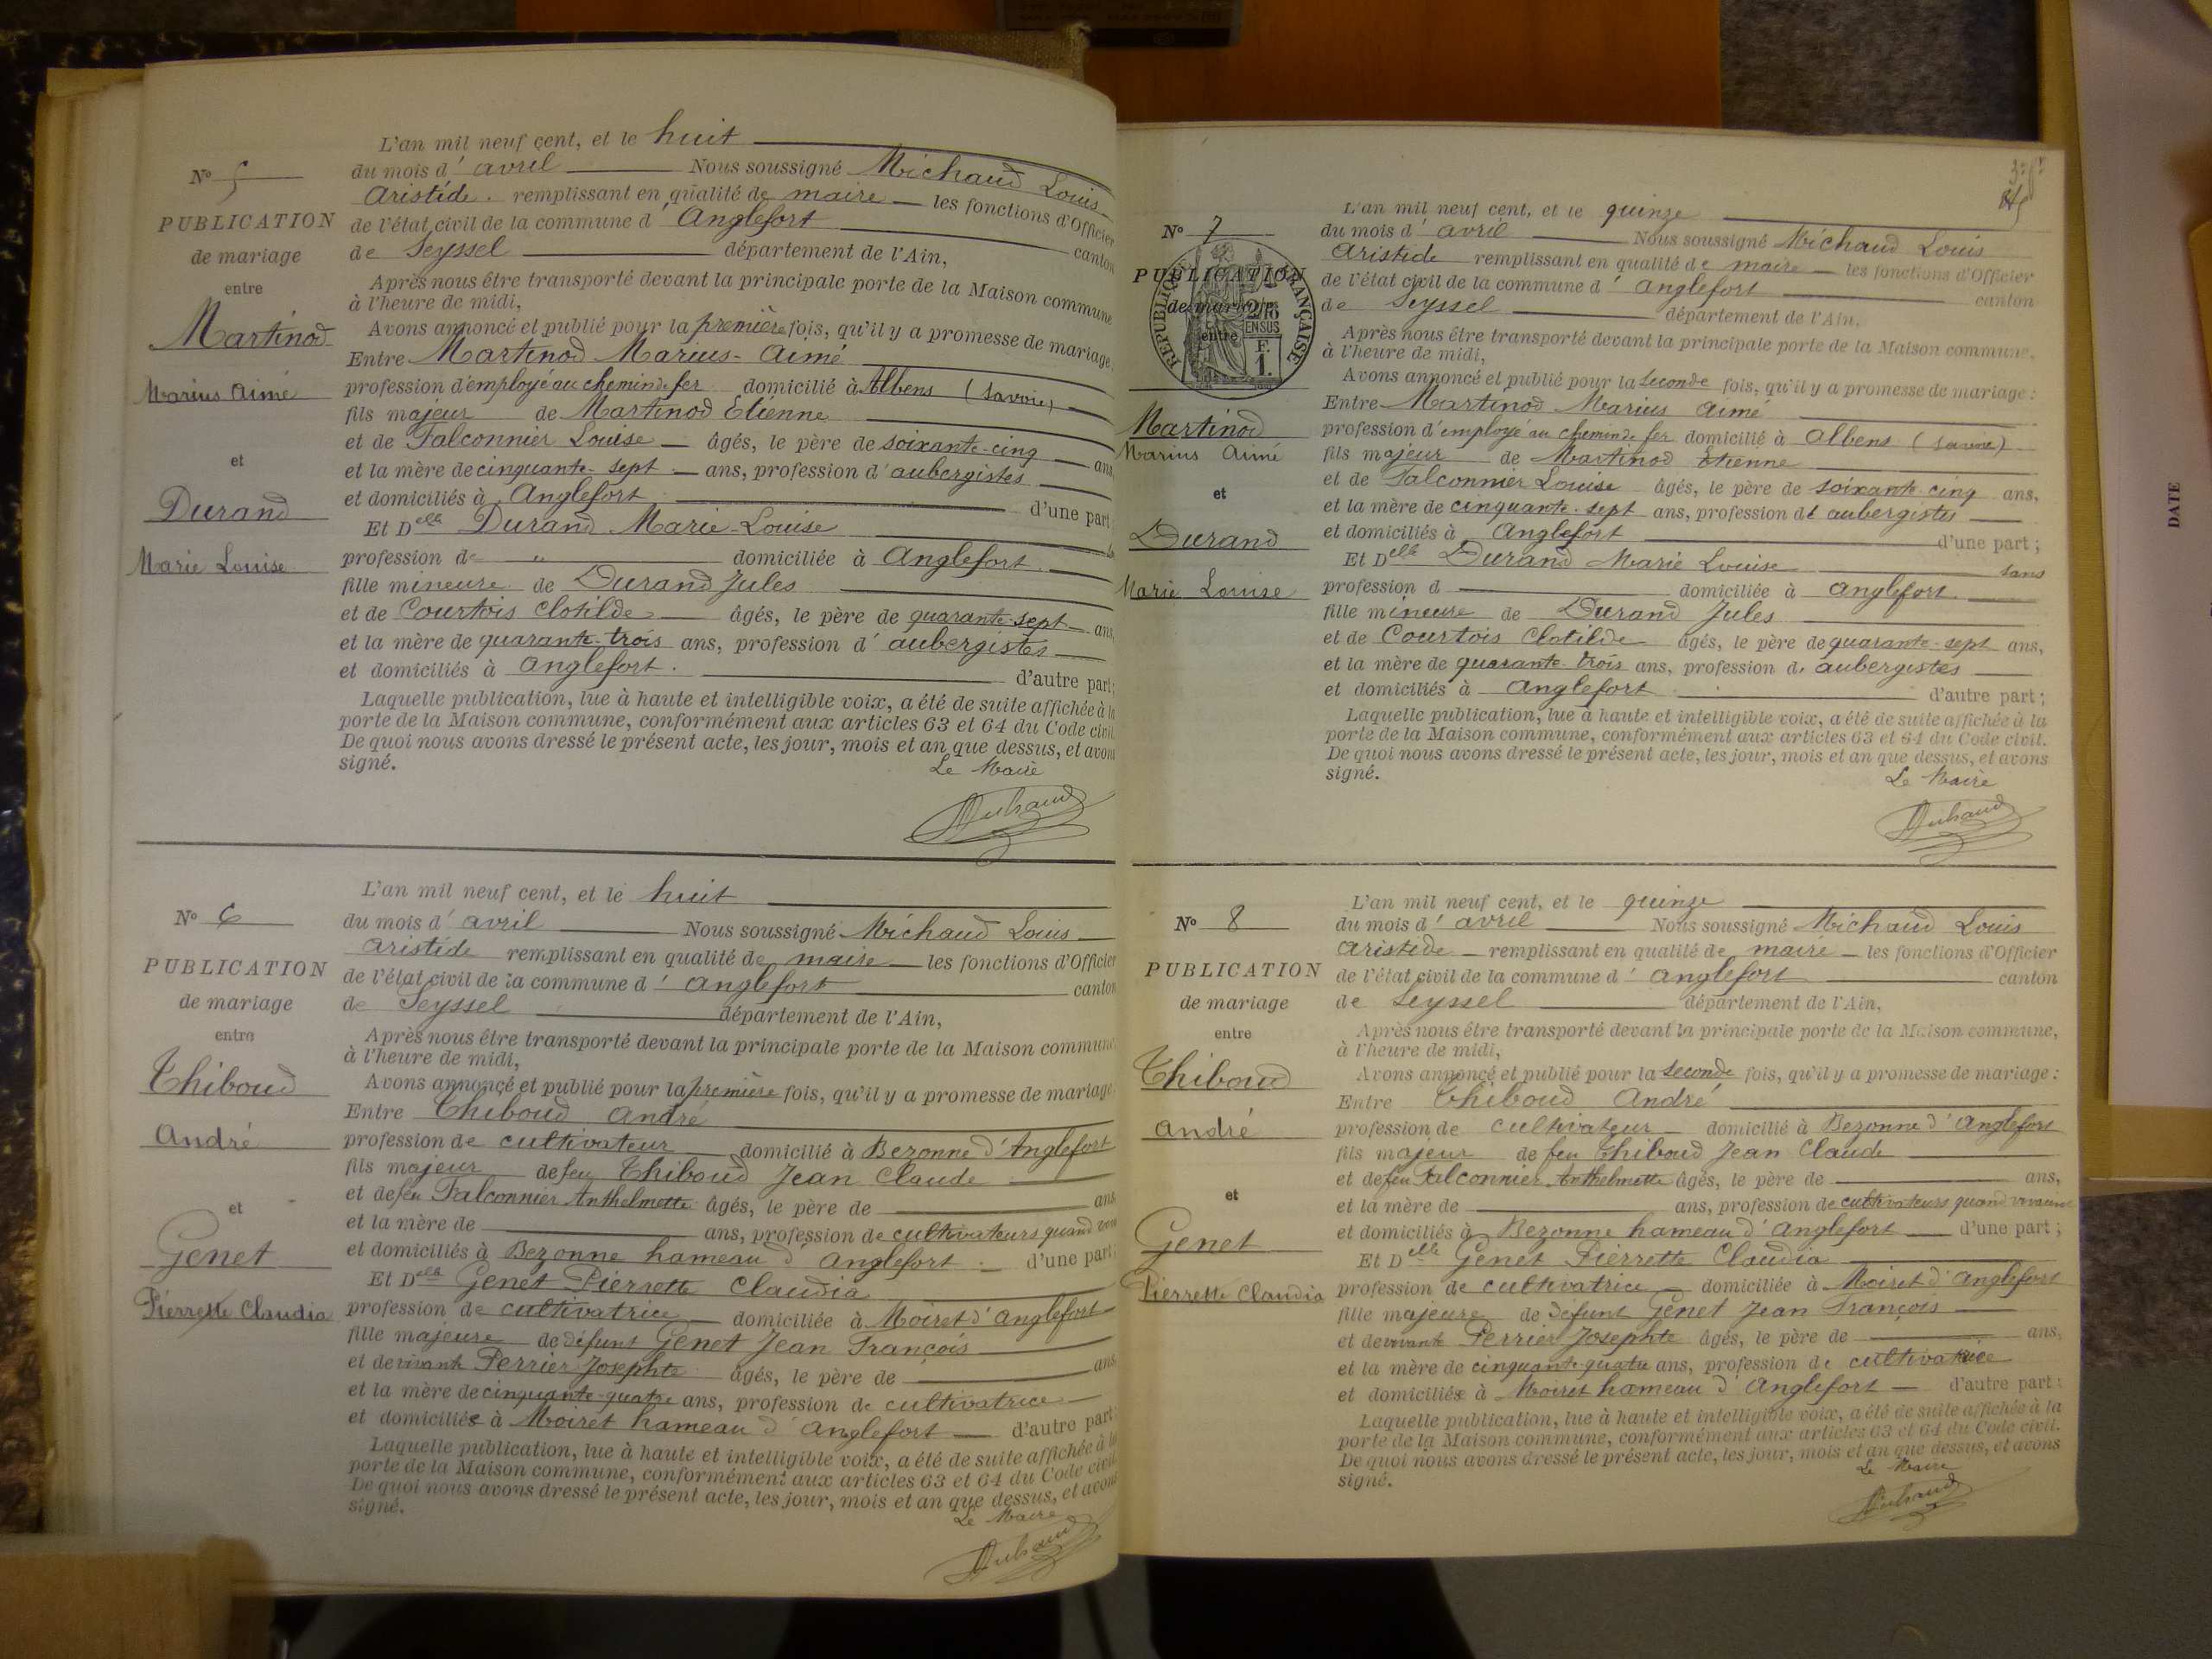 L'an mil neuf cent, et le huit
N° 5
du mois d'avril Nous soussigné Michaud Louis
Aristide. remplissant en qualité de maire les fonctions d'Officier
PUBLICATION
de l'état civil de la commune d'Anglefort canton
de mariage
de Seyssel département de l'Ain,
entre
Après nous être transporté devant la principale porte de la Maison commune
à l'heure de midi,
Martinod
Avons annoncé et publié pour la première fois, qu'il y a promesse de mariage
Entre Martinod Marius-Aimé
Marius Aimé
profession d'employé au chemin de fer domicilié à Albens (Savoie)
fils majeur de Martinod Etienne
et de Falconnier Louise âgés, le père de soixante-cinq ans
et
et la mère de cinquante-sept ans, profession d'aubergistes
et domiciliés à Anglefort d'une part
Durand
Et Delle Durand Marie-Louise
profession de " domiciliée à Anglefort.
Marie Louise
fille mineure de Durand Jules
et de Courtois Clotilde âgés, le père de quarante-sept ans,
et la mère de quarante-trois ans, profession d'aubergistes
et domiciliés à Anglefort. d'autre part;
Laquelle publication, lue à haute et intelligible voix, a été de suite affichée à la
porte de la Maison commune, conformément aux articles 63 et 64 du Code civil
De quoi nous avons dressé le présent acte, les jour, mois et an que dessus, et avons
signé.
Le Maire
L'an mil neuf cent, et le huit
N° 6
du mois d'avril Nous soussigné Michaud Louis
Aristide remplissant en qualité de maire les fonctions d'Officier
PUBLICATION
de l'état civil de la commune d'Anglefort canton
de mariage
de Seyssel département de l'Ain,
entre
Après nous être transporté devant la principale porte de la Maison commune
à l'heure de midi,
Thiboud
Avons annoncé et publié pour la première fois, qu'il y a promesse de mariage
Entre Thiboud André
André
profession de cultivateur domicilié à Bezonne d'Anglefort
fils majeur de feu Thiboud Jean Claude
et de feu Falconnier Anthelmette âgés, le père de ans
et
et la mère de ans, profession de cultivateurs quand
et domiciliés à Bezonne hameau d'Anglefort. d'une part
Genet
Et Delle Genet Pierrette Claudia
Pierrette Claudia
profession de cultivatrice domiciliée à Moiret d'Anglefort
fille majeure de défunt Genet Jean François
et de vivante Perrier Josephte âgés, le père de ans
et la mère de cinquante-quatre ans, profession de cultivatrice
et domiciliée à Moiret hameau d'Anglefort d'autre part
Laquelle publication, lue à haute et intelligible voix, a été de suite affichée à la
porte de la Maison commune, conformément aux articles 63 et 64 du Code civil
De quoi nous avons dressé le présent acte, les jour, mois et an que dessus, et avons
signé.
Le Maire
L'an mil neuf cent, et le quinze
N° 7
du mois d'avril Nous soussigné Michaud Louis
Aristide remplissant en qualité de maire les fonctions d'Officier
PUBLICATION
de l'état civil de la commune d'Anglefort canton
de mariage
de Seyssel département de l'Ain.
entre
RÉPUBLIQUE FRANÇAISE
2/10 EN SUS
F. 1.
Après nous être transporté devant la principale porte de la Maison commune,
à l'heure de midi,
Avons annoncé et publié pour la seconde fois, qu'il y a promesse de mariage:
Entre Martinod Marius Aimé
Martinod
profession d'employé au chemin de fer domicilié à Albens (Savoie)
Marius Aimé
fils majeur de Martinod Etienne
et de Falconnier Louise âgés, le père de soixante-cinq ans,
et
et la mère de cinquante-sept ans, profession d'aubergistes
et domiciliés à Anglefort d'une part;
Durand
Et Delle Durand Marie Louise sans
Marie Louise
profession d domiciliée à Anglefort
fille mineure de Durand Jules
et de Courtois Clotilde âgés, le père de quarante-sept ans,
et la mère de quarante-trois ans, profession d'aubergistes
et domiciliés à Anglefort d'autre part;
Laquelle publication, lue à haute et intelligible voix, a été de suite affichée à la
porte de la Maison commune, conformément aux articles 63 et 64 du Code civil.
De quoi nous avons dressé le présent acte, les jour, mois et an que dessus, et avons
signé.
Le Maire
L'an mil neuf cent, et le quinze
N° 8
du mois d'avril Nous soussigné Michaud Louis
Aristide remplissant en qualité de maire les fonctions d'Officier
PUBLICATION
de l'état civil de la commune d'Anglefort canton
de mariage
de Seyssel département de l'Ain,
entre
Après nous être transporté devant la principale porte de la Maison commune,
à l'heure de midi,
Thiboud
Avons annoncé et publié pour la seconde fois, qu'il y a promesse de mariage:
Entre Thiboud André
André
profession de cultivateur domicilié à Bezonne d'Anglefort
fils majeur de feu Thiboud Jean Claude
et de feu Falconnier Anthelmette âgés, le père de ans,
et
et la mère de ans, profession de cultivateurs quand vivaient
et domiciliés à Bezonne hameau d'Anglefort d'une part;
Genet
Et Delle Genet Pierrette Claudia
Pierrette Claudia
profession de cultivatrice domiciliée à Moiret d'Anglefort
fille majeure de défunt Genet Jean François
et de vivante Perrier Josephte âgés, le père de ans,
et la mère de cinquante-quatre ans, profession de cultivatrice
et domiciliée à Moiret hameau d'Anglefort d'autre part;
Laquelle publication, lue à haute et intelligible voix, a été de suite affichée à la
porte de la Maison commune, conformément aux articles 63 et 64 du Code civil.
De quoi nous avons dressé le présent acte, les jour, mois et an que dessus, et avons
signé.
Le Maire
DATE